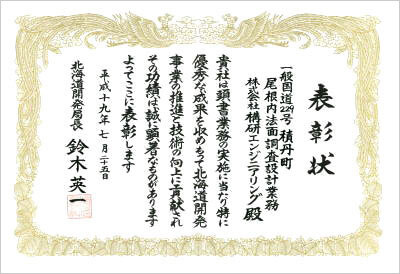 表彰状
一般国道229号 積丹町
尾根内法面調査設計業務
株式会社構研エンジニアリング殿
貴社は頭書業務の実施に当たり特に
優秀な成果を収めもって北海道開発
事業の推進と技術の向上に貢献され
その功績は誠に顕著なものがあります
よってここに表彰します
平成十九年七月二十五日
北海道開発局長 鈴木英一